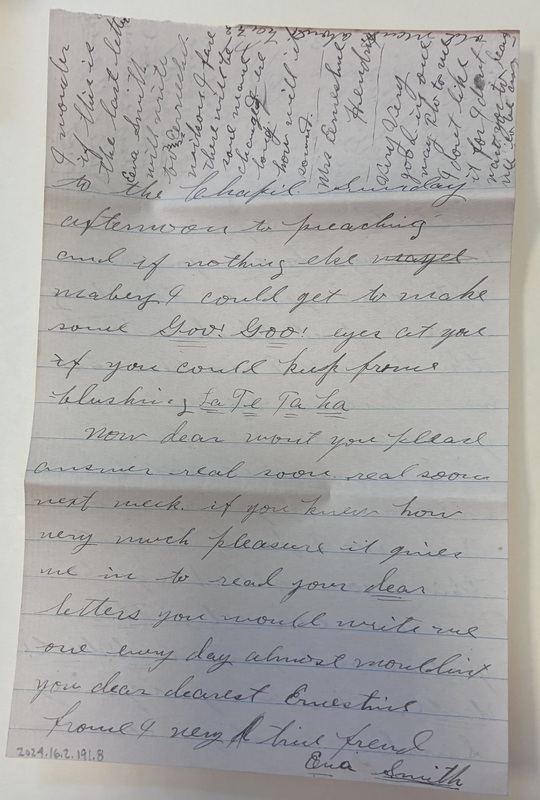 I wonder
if this is
the last lette
Eva Smith
will write
to
there will be
some more
change
long
how will it
sound.
Mrs Ernestine
Hendrix
Very Very
good in one
way But to me
I dont like
it for I dont
want you to
to the Chapil Sunday
afternoon to preaching
and if nothing else mayel
mabey I could get to make
some Goo! Goo! eyes at you
if you could keep frome
blushing La Te Ta ha
Now dear wont you please
answer real soon real soon
next week. if you knew how
very much pleasure it gives
me in to read your dear
letters you would write me
one every day almost wouldint
you dear dearest Ernestine
frome a very true frend
Eva Smith
2024.16.2.191.8